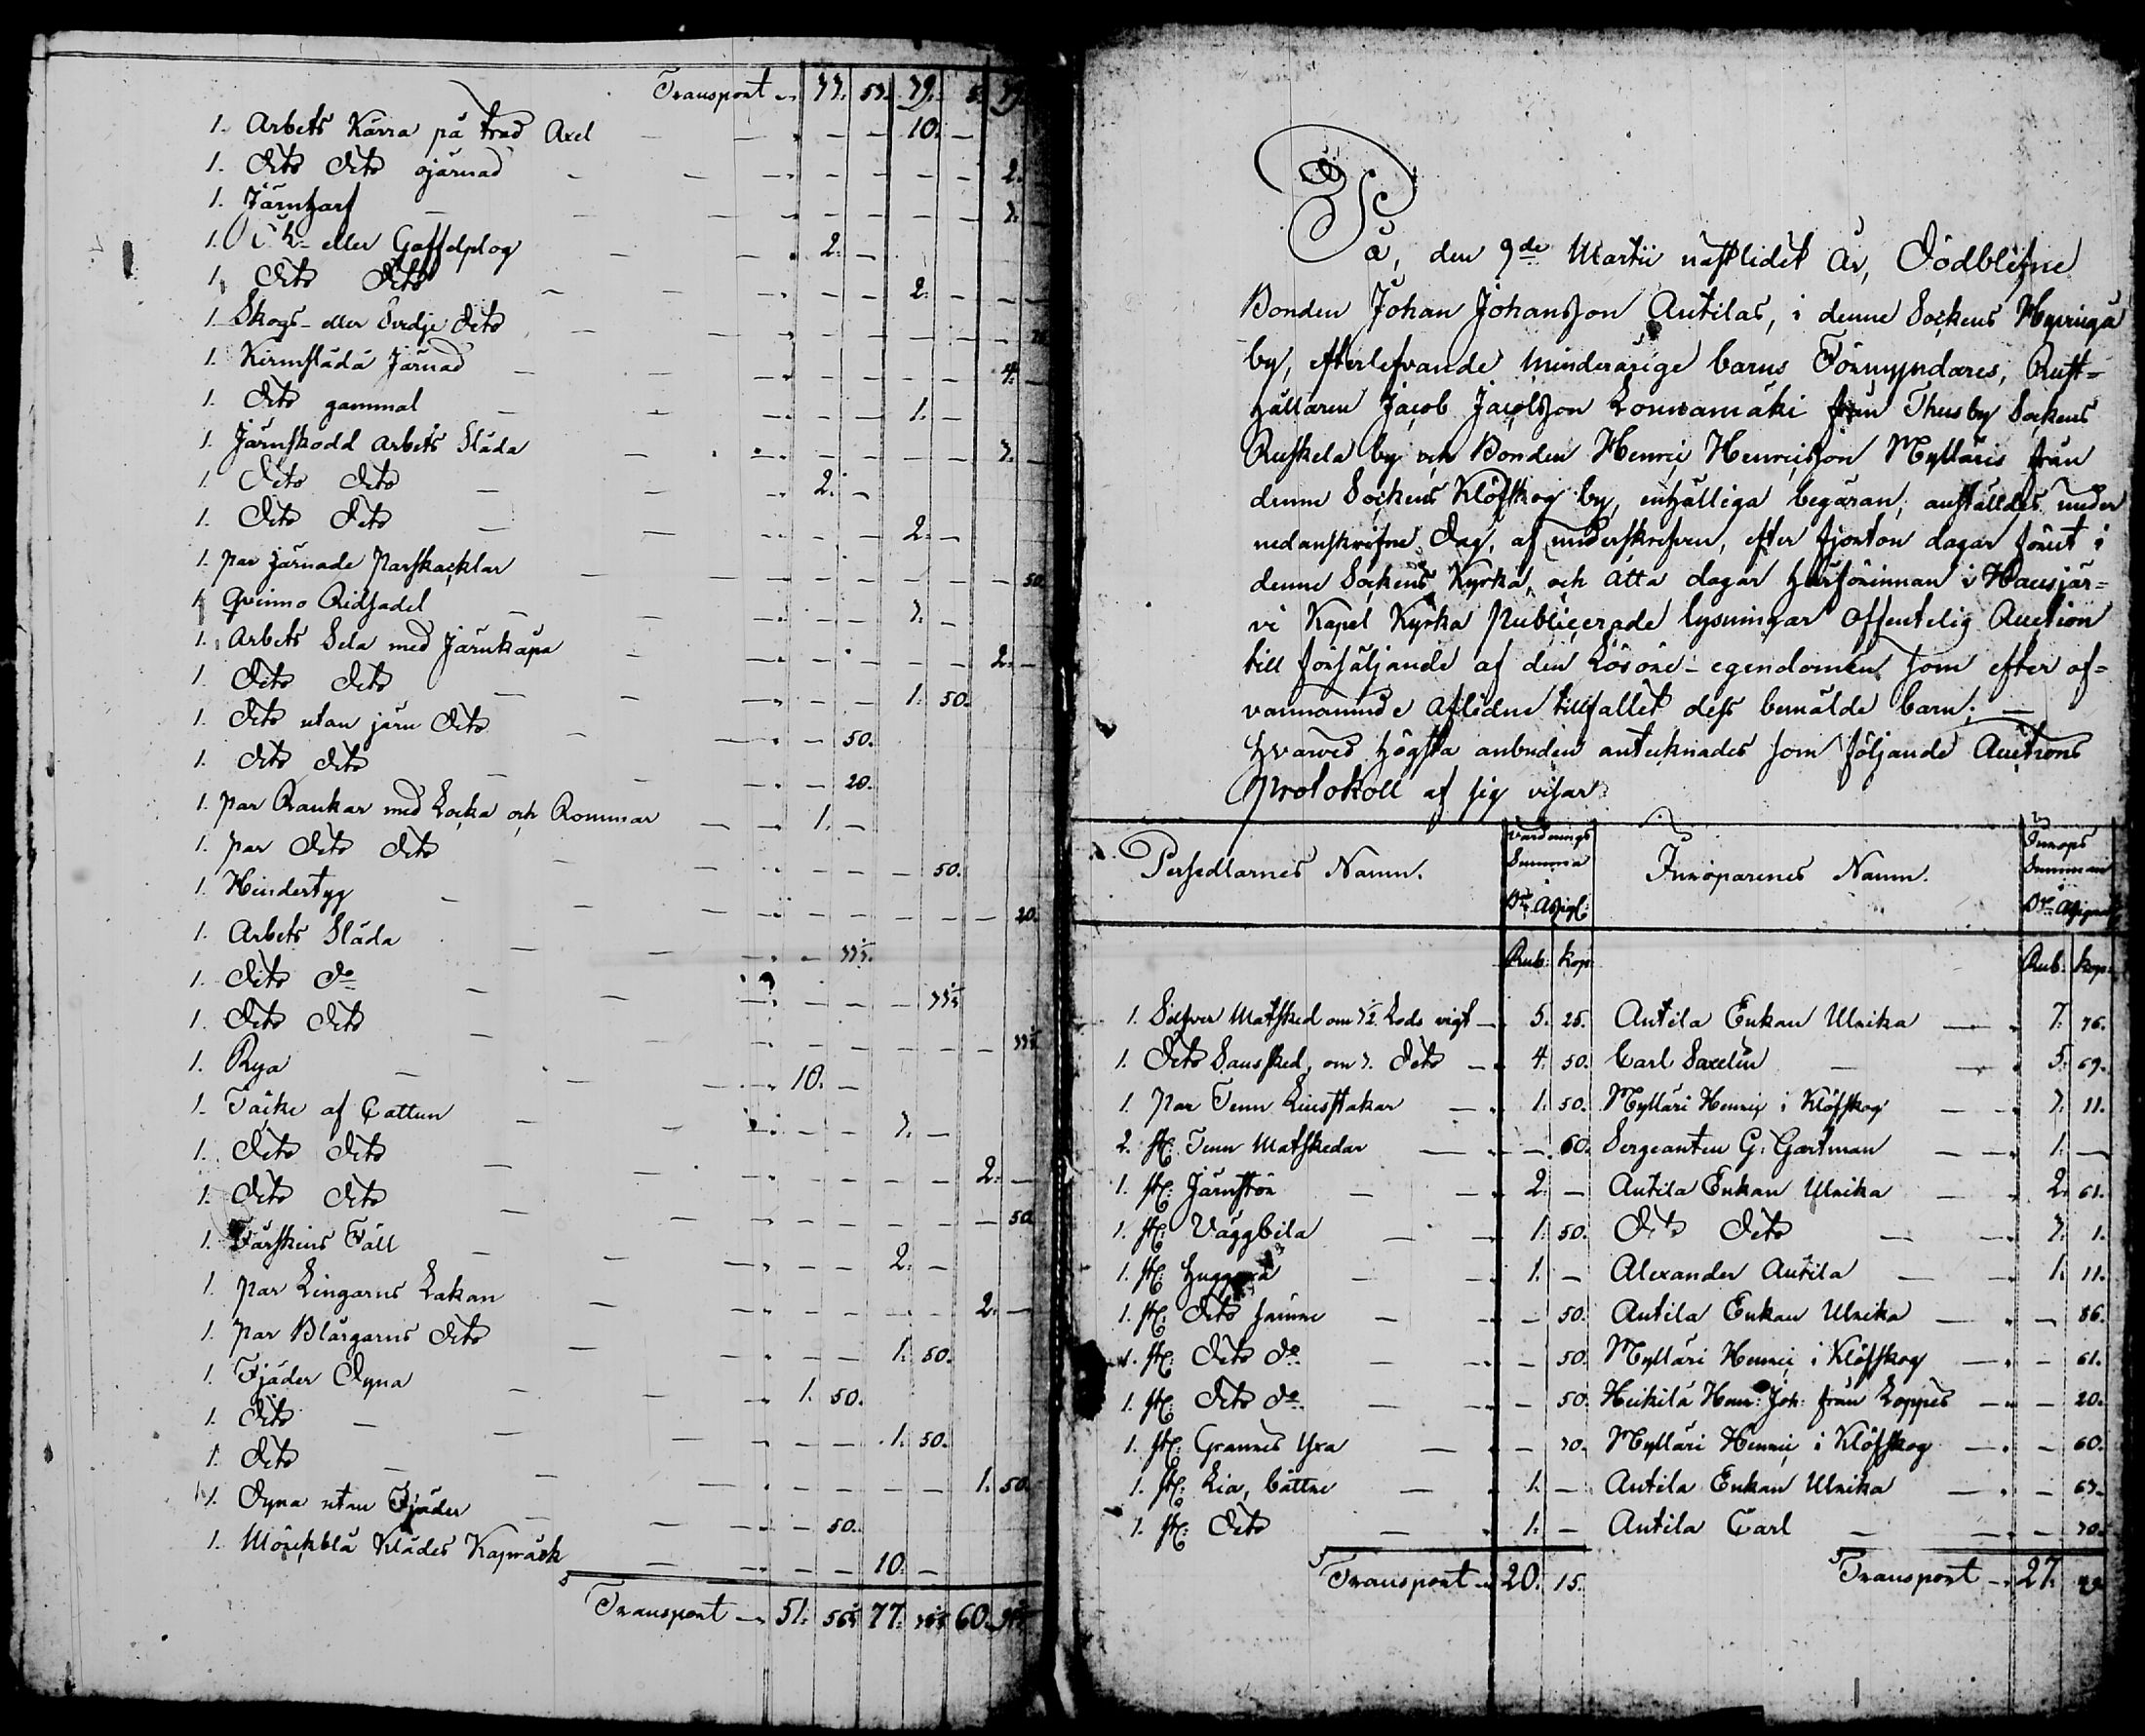 Transport 33. 53. 39. 5. 39.
1. Arbets Kärra på träd Axel 10.
1. Dito Dito ojärnad 2.
1. Järnharf 3.
1. eller Gaffelplog 2.
1. Dito Dito 2.
1. Skogs- eller Svedje Dito
1. Kirmsläda Järnad 4.
1. Dito gammal 1.
1. Järnskodd arbets Släda 3.
1. Dito Dito 2.
1. Dito Dito 2.
1. par järnade Parskacklar 50.
1. Qvinno Ridsadel 3.
1. Arbets Sela med Järnkåpa 2.
1. Dito Dito 1. 50.
1. Dito utan järn Dito 50.
1. Dito Dito 20.
1. par Rankar med Locka och Rommar 1.
1. par Dito Dito 50.
1. Hindertyg 20.
1. Arbets Släda 33⅓.
1. Dito Do 33⅓
1. Dito Dito 33⅓
1. Rya 10.
1. Täcke af Cattun 3.
1. Dito Dito 2.
1. Dito Dito 50.
1. Fårskins Fäll 2.
1. par Lingarns Lakan 2.
1. par Blårgarns Dito 1. 50.
1. Fjäder Dyna 1. 50.
1. Dito 1. 50.
1. Dito 1. 50.
1. Dyna utan Fjäder 50.
1. Mörckblå Klädes Kapråck 10.
Transport 51. 56⅓ 77. 60.
På, den 9de Martii nästlidet År, Dödblefne
Bonden Johan Johansson Antilas, i denne Sockens Hyvinga
by, efterlefvande minderårige barns Förmyndares, Rust-
hållaren Jacob Jacobsson Lounamäki från Thusby Sockens
Ruskela by och Bonden Henric Henricsson Mylläris från
denne Sockens Klöfskog by, enhälliga begäran, anställdes under
nedanskrifne Dag, af underskrefven, efter fjorton dagar förut i
denne Sockens Kyrka, och åtta dagar härförinnan i Hausjär-
vi Kapel Kyrka Publicerade lysningar Offentelig Auction
till försäljande af den Lösöre-egendomen som efter of-
vannämnde Aflidne tillfallet dess bemälde barn; —
hvarvid högsta anbuden antecknades som följande Auctions
Protokoll af sig visar.
Persedlarnes Namn. Värderings Summa Bco Assign: Inroparenes Namn. Inrops Summan Bco Assignat:
Rub. Kop: Rub. Kop:
1. Silfver Matsked om 3½ Lods vigt 5. 25. Antila Enkan Ulrika 7. 76.
1. Dito Sausked, om 3. Dito 4. 50. Carl Saxelin 5. 69.
1. Par Tenn Liusstakar 1. 50. Mylläri Henric i Klöfskog 3. 11.
2. st: Tenn Matskedar 60. Sergeanten G: Gartman 1.
1. st: Järnstör 2. Antila Enkan Ulrika 2. 61.
1. st: Väggbila 1. 50. Dito Dito 3. 1.
1. st: 1. Alexander Antila 1. 11.
1. st: Dito sämre 50. Antila Enkan Ulrika 86.
1. st: Dito Do 50. Mylläri Henric i Klöfskog 61.
1. st: Dito Do 50. Heikilä Hen: Joh: från Loppis 20.
1. st: Grannes Yxa 30. Mylläri Henric i Klöfskog 60.
1. st: Lia, bättre 1. Antila Enkan Ulrika 63.
1. st: Dito 1. Antila Carl 30.
Transport 20. 15. Transport 27.